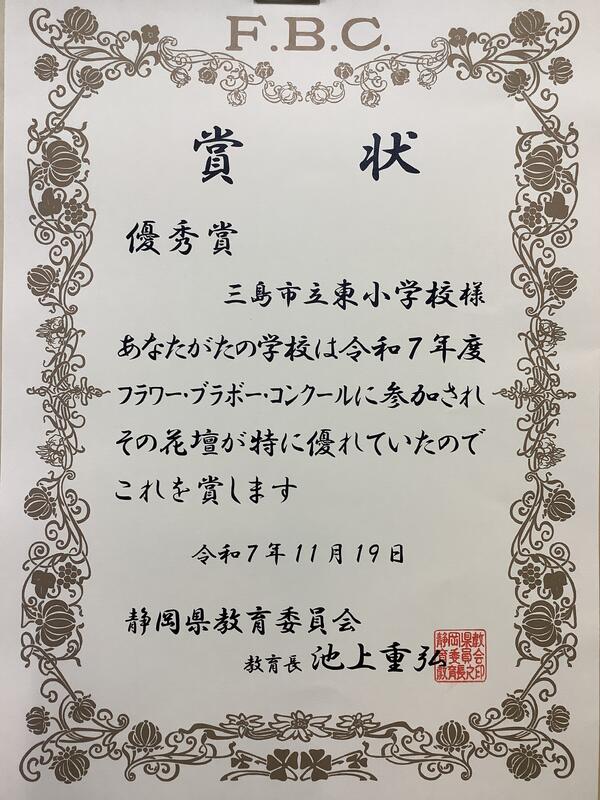 F.B.C.
賞状
優秀賞
三島市立東小学校様
あなたがたの学校は令和7年度
フラワー・ブラボー・コンクールに参加され
その花壇が特に優れていたので
これを賞します
令和7年11月19日
静岡県教育委員会
教育長 池上重弘
静岡県教育委員会教育長之印